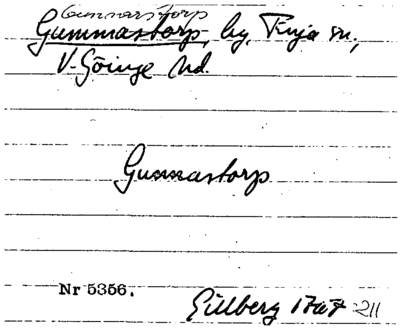 Gunnarstorp
Gummastorp, by, Finja sn,
V. Göinge hd.
Gunnastorp
Nr 5356.
Gillberg 211